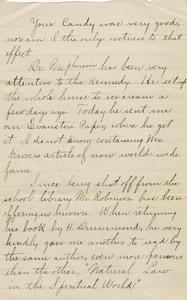 Your Candy was very good,
nor am I the only witness to that
effect.
Dr. McPherson has been very
attentive to the Kennedy. He set up
the whole house to ice cream a
few days ago. Today he sent me
an Evanston Paper, where he got
it I do not know, containing Mr.
Grove's article of now world wide
fame.
Since being shut off from the
school library Mr. Robinson has been
offering us his own. When returning
his book by H. Drummond, he very
kindly gave me another to read by
the same author, even more famous
than the other, "Natural Law
in the Spiritual World"